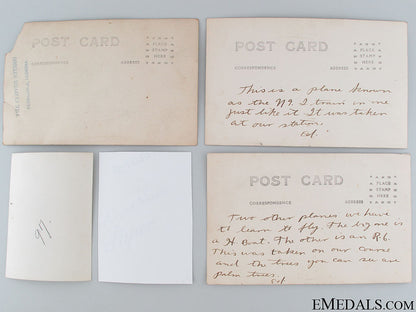 POST CARD
CORRESPONDENCE
ADDRESS
PLACE
STAMP
HERE
POST CARD
CORRESPONDENCE
ADDRESS
PLACE
STAMP
HERE
This is a plane known
as the N9. I train in one
just like it. It was taken
at our station.
Ed.
97.
POST CARD
CORRESPONDENCE
ADDRESS
PLACE
STAMP
HERE
Two other planes we have
to learn to fly. The big one is
a H Boat. The other is an R6.
This was taken on our course
and the trees you can see are
palm trees.
Ed
EMEDALS.COM